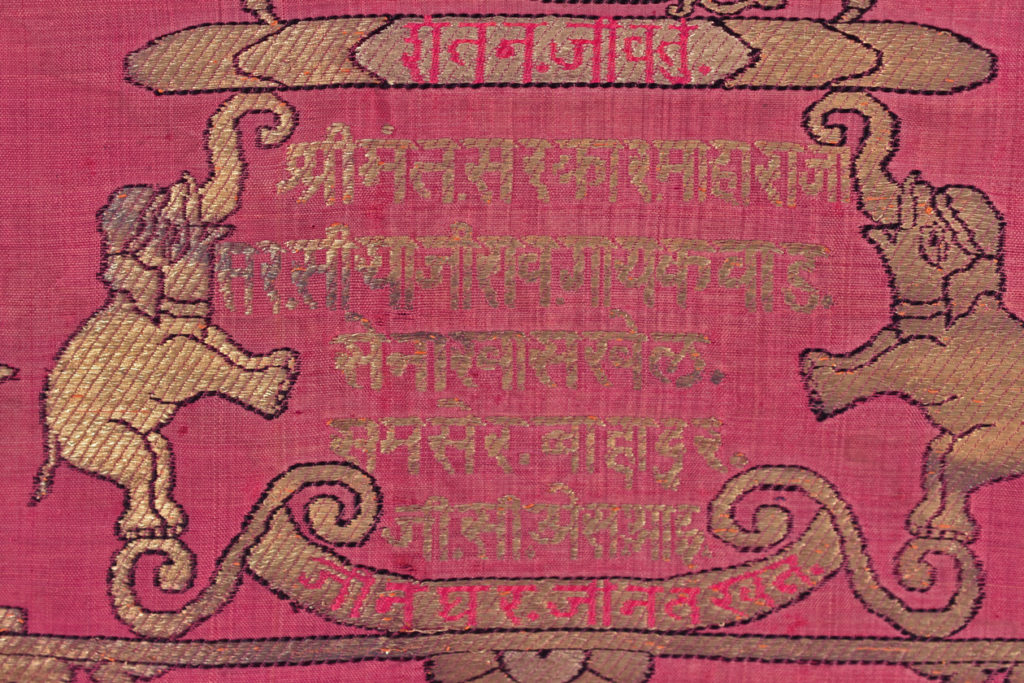 शंतन.जीवतुं.
श्रीमंत.सरकार.माहाराजा
सर.सीयाजीराव.गायकवाड.
सेनाखासखेल.
समसेर.बाहादुर.
जी.सी.अेस.आइ.
जीनघर.जीनतखत.